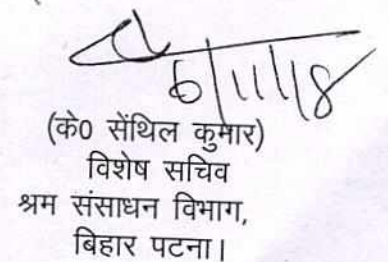 6/11/18
(के0 सेंथिल कुमार)
विशेष सचिव
श्रम संसाधन विभाग,
बिहार पटना।